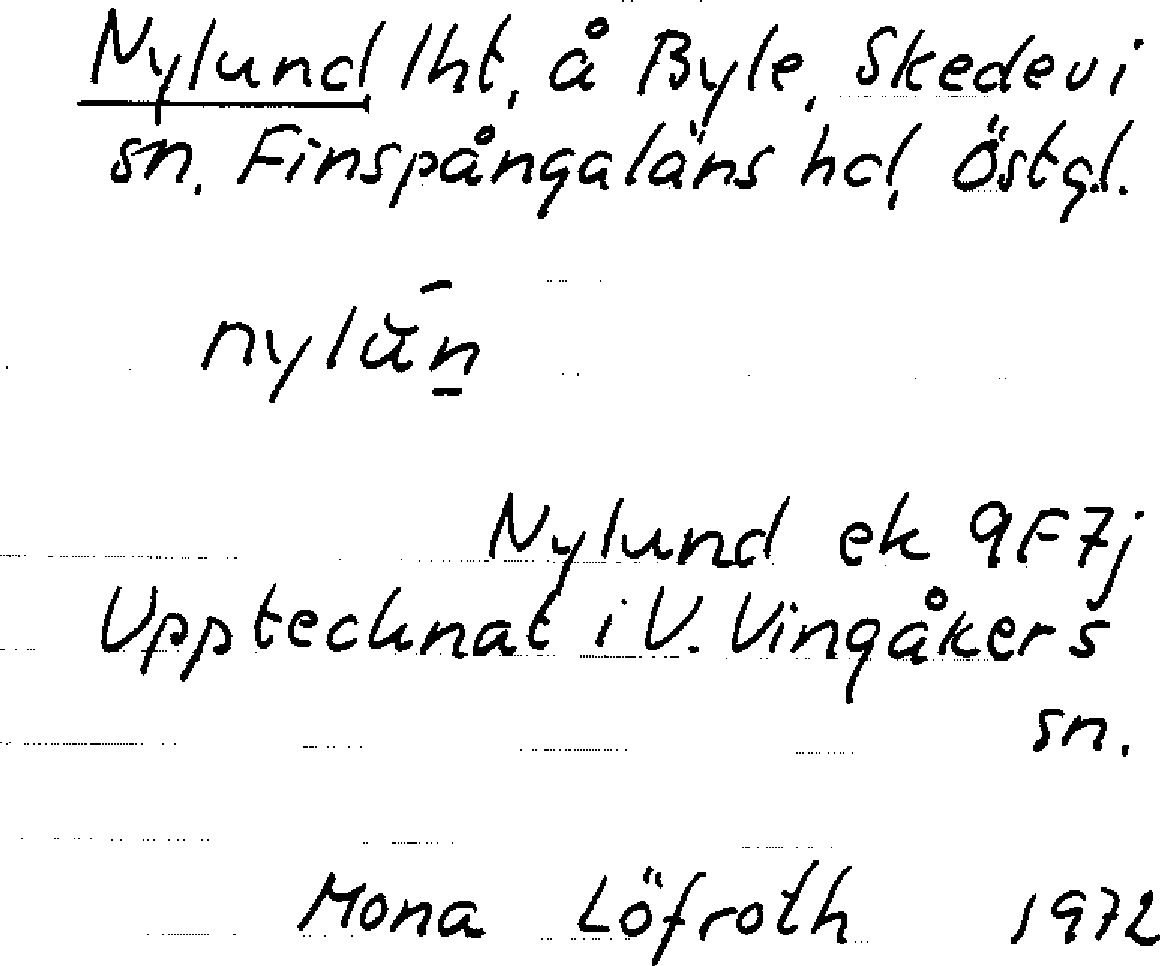 Nylund, lht, å Byle, Skedevi
sn. Finspångaläns hd, Östg.l.
nylŭn̲̄
Nylund ek 9F7j
Upptecknat i V. Vingåkers
sn.
Mona Löfroth 1972